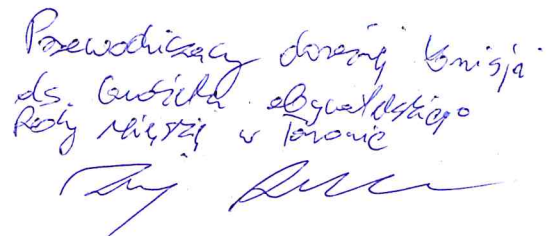 Przewodniczący doraźnej komisji
ds. budżetu obywatelskiego
Rady Miejskiej w